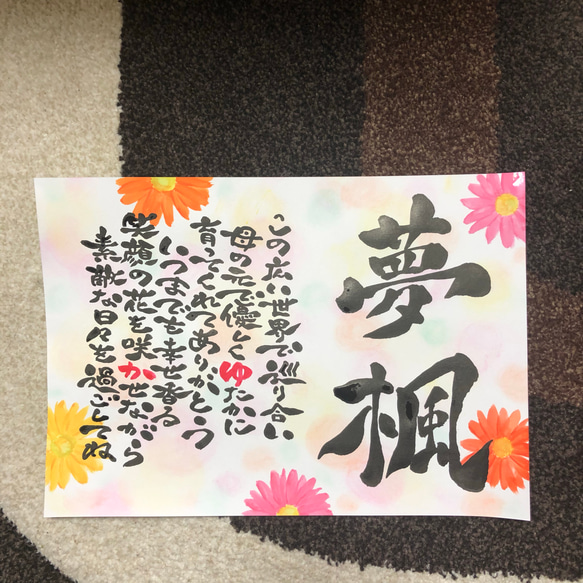 夢楓
この広い世界で巡り合い
母の元で優しくゆたかに
育ってくれてありがとう
いつまでも幸世香る
笑顔の花を咲かせながら
素敵な日々を過ごしてね